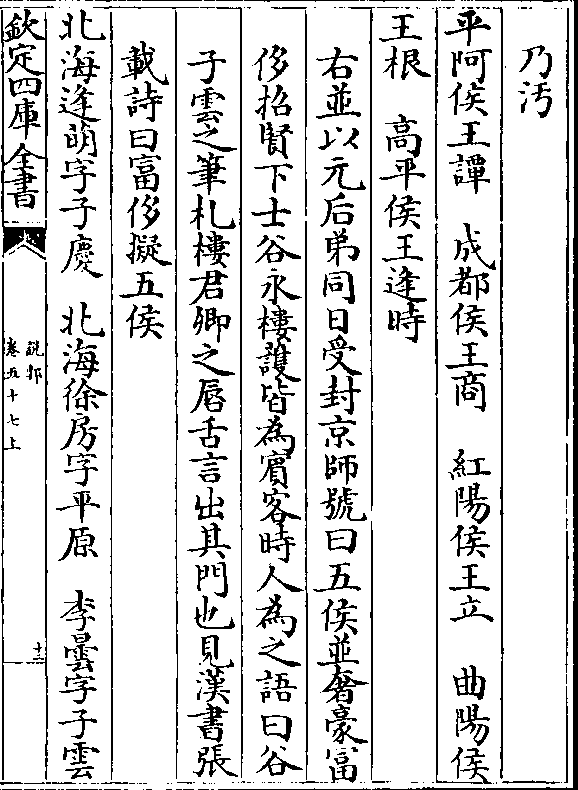 乃汚
平阿侯王譚　成都侯王商　紅陽侯王立　曲陽侯
王根　高平侯王逢時
右並以元后弟同日受封京師號曰五侯並奢豪富
侈招賢下士谷永樓護皆為賔客時人為之語曰谷
子雲之筆札樓君卿之唇舌言出其門也見漢書張
載詩曰富侈擬五侯
北海逢萌字子慶　北海徐房字平原　李曇字子雲
欽定四庫全書
說郛
卷五十七上
十三